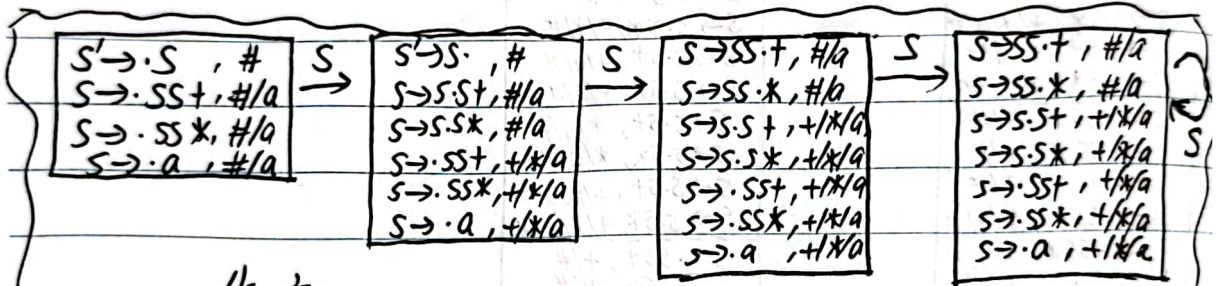 S'→·S , #
S→·SS+, #/a
S→·SS*, #/a
S→·a , #/a
S
S'→S· , #
S→S·S+, #/a
S→S·S*, #/a
S→·SS+, +/*/a
S→·SS*, +/*/a
S→·a , +/*/a
S
S→SS·+, #/a
S→SS·*, #/a
S→S·S+, +/*/a
S→S·S*, +/*/a
S→·SS+, +/*/a
S→·SS*, +/*/a
S→·a , +/*/a
S
S→SS·+, #/a
S→SS·*, #/a
S→S·S+, +/*/a
S→S·S*, +/*/a
S→·SS+, +/*/a
S→·SS*, +/*/a
S→·a , +/*/a
S